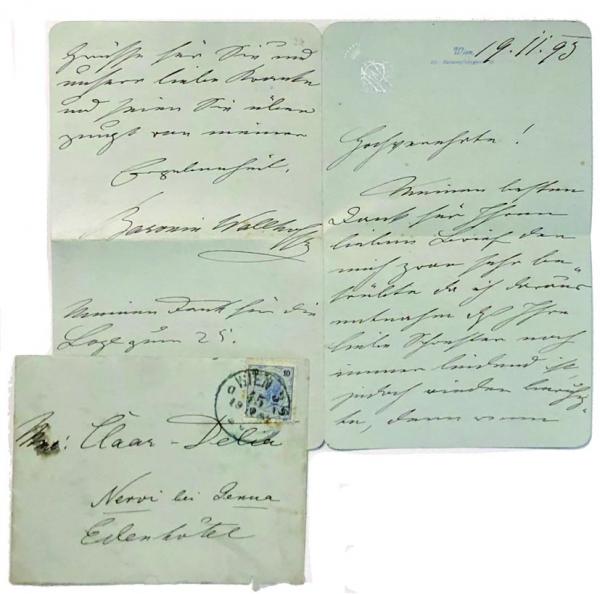 Wien, 19. II. 95
Hochverehrte!
Meinen besten
Dank für Ihren
lieben Brief der
mich zwar sehr be-
trübte da ich daraus
entnahm daß Ihre
liebe Schwester noch
immer leidend ist,
jedoch wieder
te, denn wenn
Grüße für Sie und
unsere liebe Kranke
und seien Sie über
zeugt von meiner
Ergebenheit.
Baronin
Meinen Dank für die
Loge zum 25.
WIEN
10
Claar-Delia
Nervi bei Genua
Edenhôtel